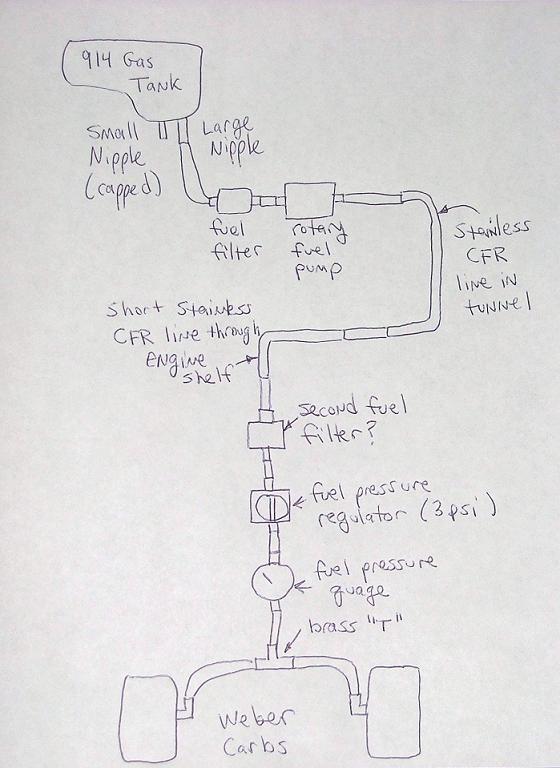 914 Gas
Tank
Small
Nipple
(capped)
Large
Nipple
fuel
filter
rotary
fuel
pump
Stainless
CFR
line in
tunnel
Short Stainless
CFR line through
engine
shelf
second fuel
filter?
fuel pressure
regulator (3psi)
fuel pressure
guage
brass "T"
Weber
Carbs